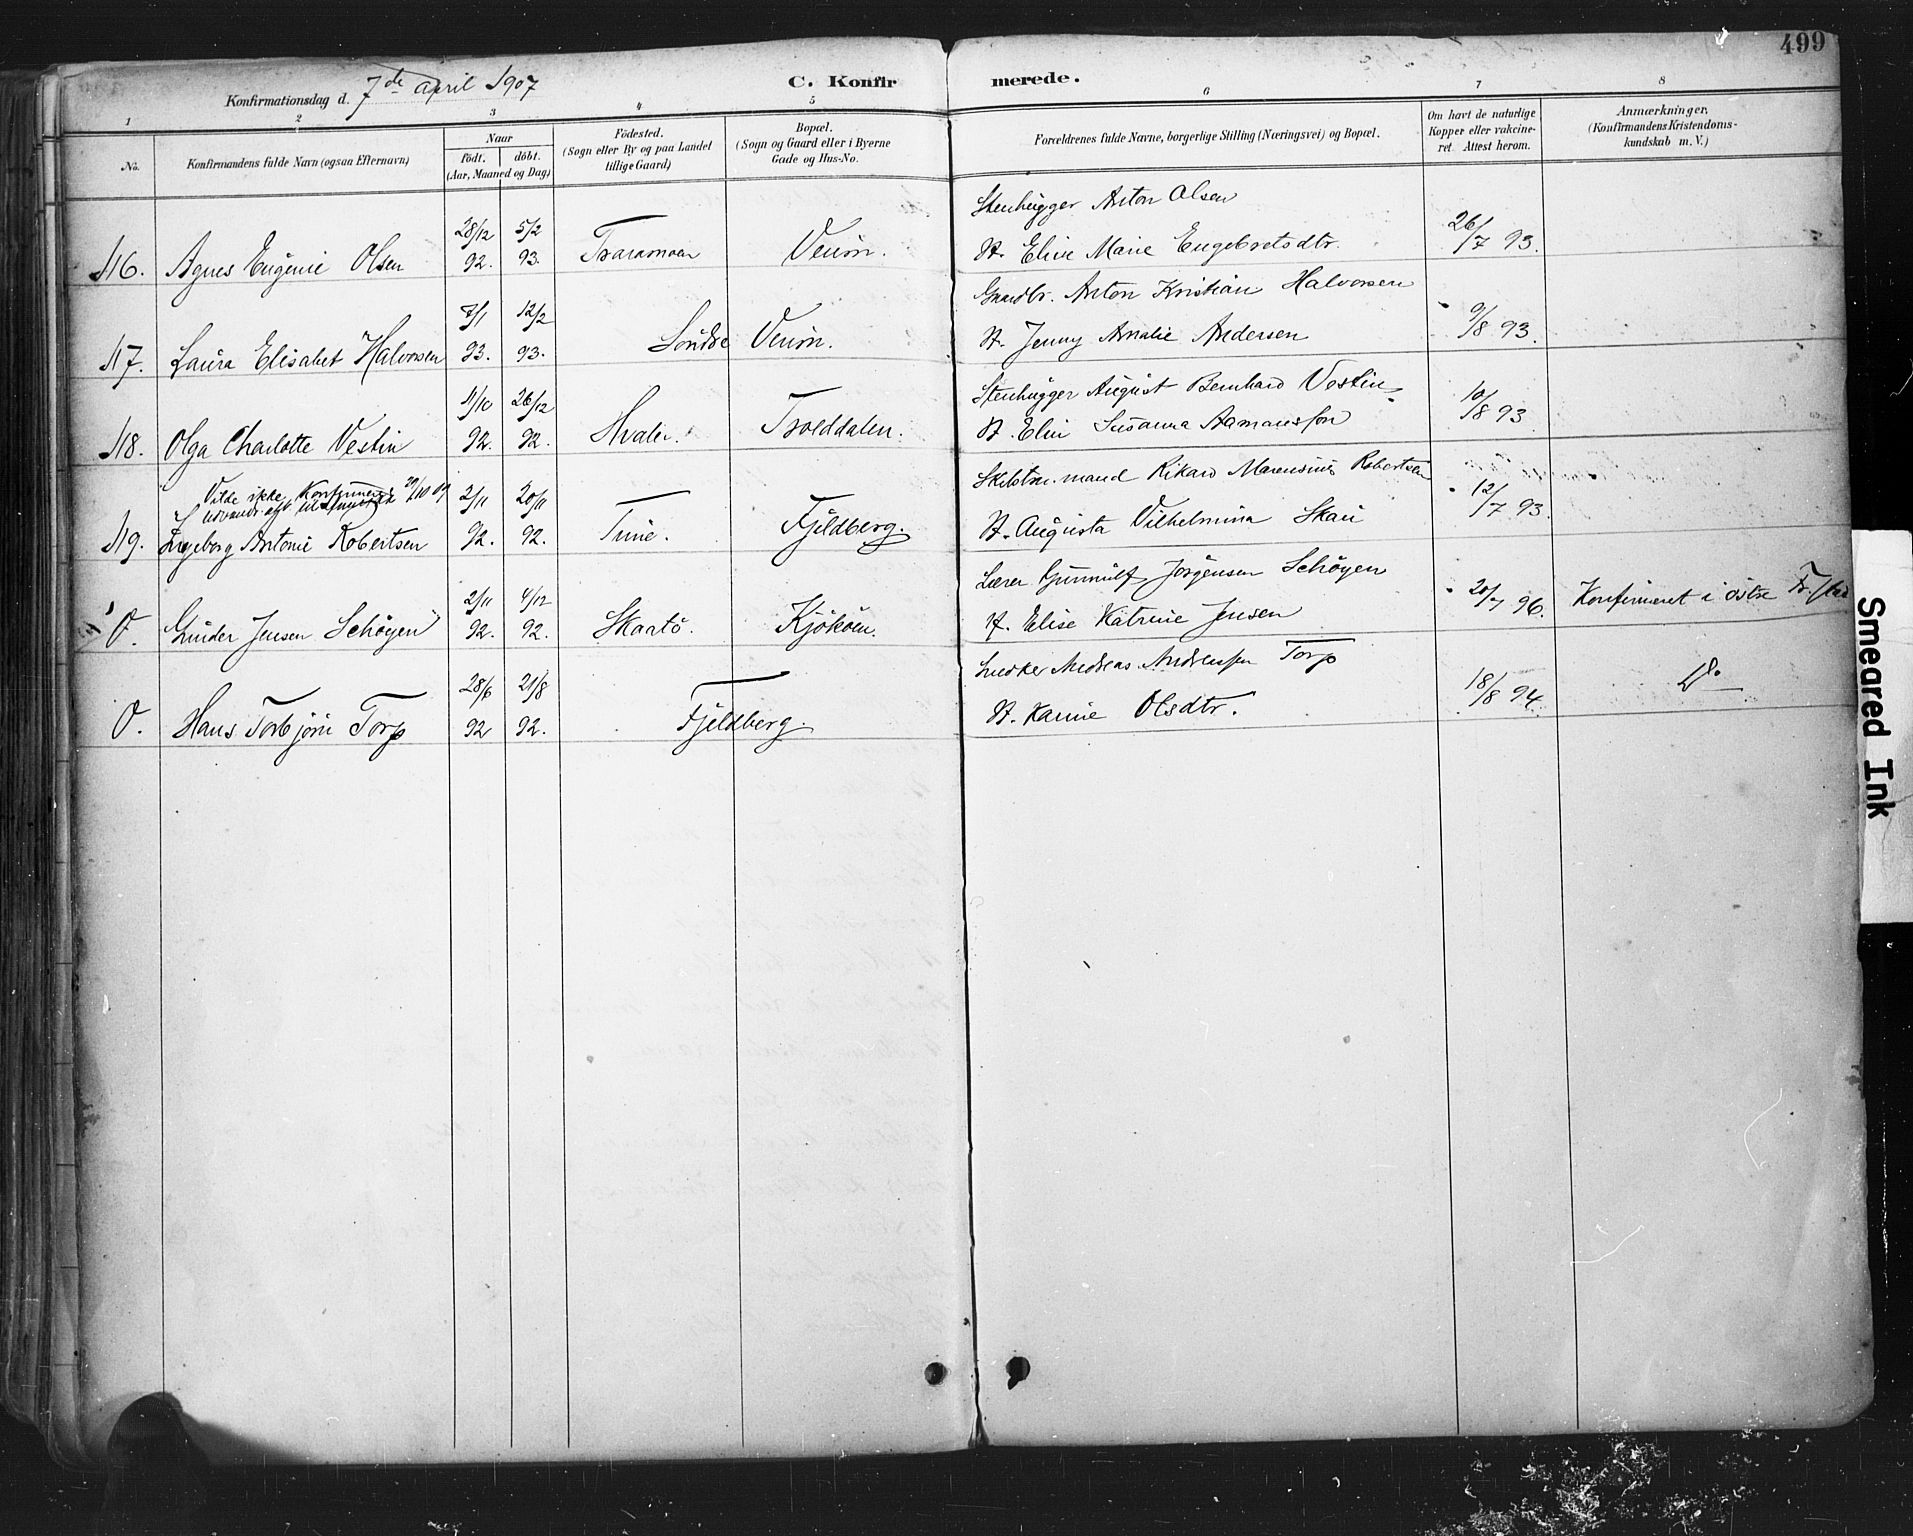 499
Konfirmationsdag d. 7de april 1907
C. Konfirmerede.
1 2 3 4 5 6 7 8
No.
Konfirmandens fulde Navn (ogsaa Efternavn)
Naar
født. døbt.
(Aar, Maaned og Dag)
Fødested.
(Sogn eller By og paa Landet
tillige Gaard)
Bopæl.
(Sogn og Gaard eller i Byerne
Gade og Hus-No.
Forældrenes fulde Navne, borgerlige Stilling (Næringsvei) og Bopæl.
Om havt de naturlige
Kopper eller vakcine-
ret. Attest herom.
Anmærkninger,
(Konfirmandens Kristendoms-
kundskab m. V.)
Stenhugger Anton Olsen
116. Agnes Eugenie Olsen 28/12 92. 5/2 93. Veum. H. Elise Marie Engebretsdtr. 26/7 93.
Gaardbr. Anton Kristian Halvorsen
117. Laura Elisabet Halvorsen 7/1 93. 12/2 93. Søndre Veum. H. Jenny Amalie Andersen 9/8 93.
Stenhugger August Bernhard Vestin
118. Olga Charlotte Vestin 11/10 92. 26/12 92. Hvaler. Trolddalen. H. Elin Susanna Aamansson 10/8 93
Vilde ikke Konfirmeres 29/10 07
Rikard Marensius Robertsen
119. Ingeborg Antonie Robertsen 2/11 92. 20/11 92. Tune. Fjeldberg. H. Augusta Vilhelmina Skau 12/7 93.
Lærer Gunnulf Jørgensen Schøyen
O. Gunder Jensen Schøyen 2/11 92. 4/12 92. Skaatø. Kjøkøen. H. Elise Katrine Jensen 20/7 96. Konfirmeret i østre Fr.stad
Snedker Andreas Andreassen Torp
O. Hans Torbjørn Torp 28/6 92 21/8 92. Fjeldberg. H. Karine Olsdtr. 18/8 94. Do.
Smeared Ink